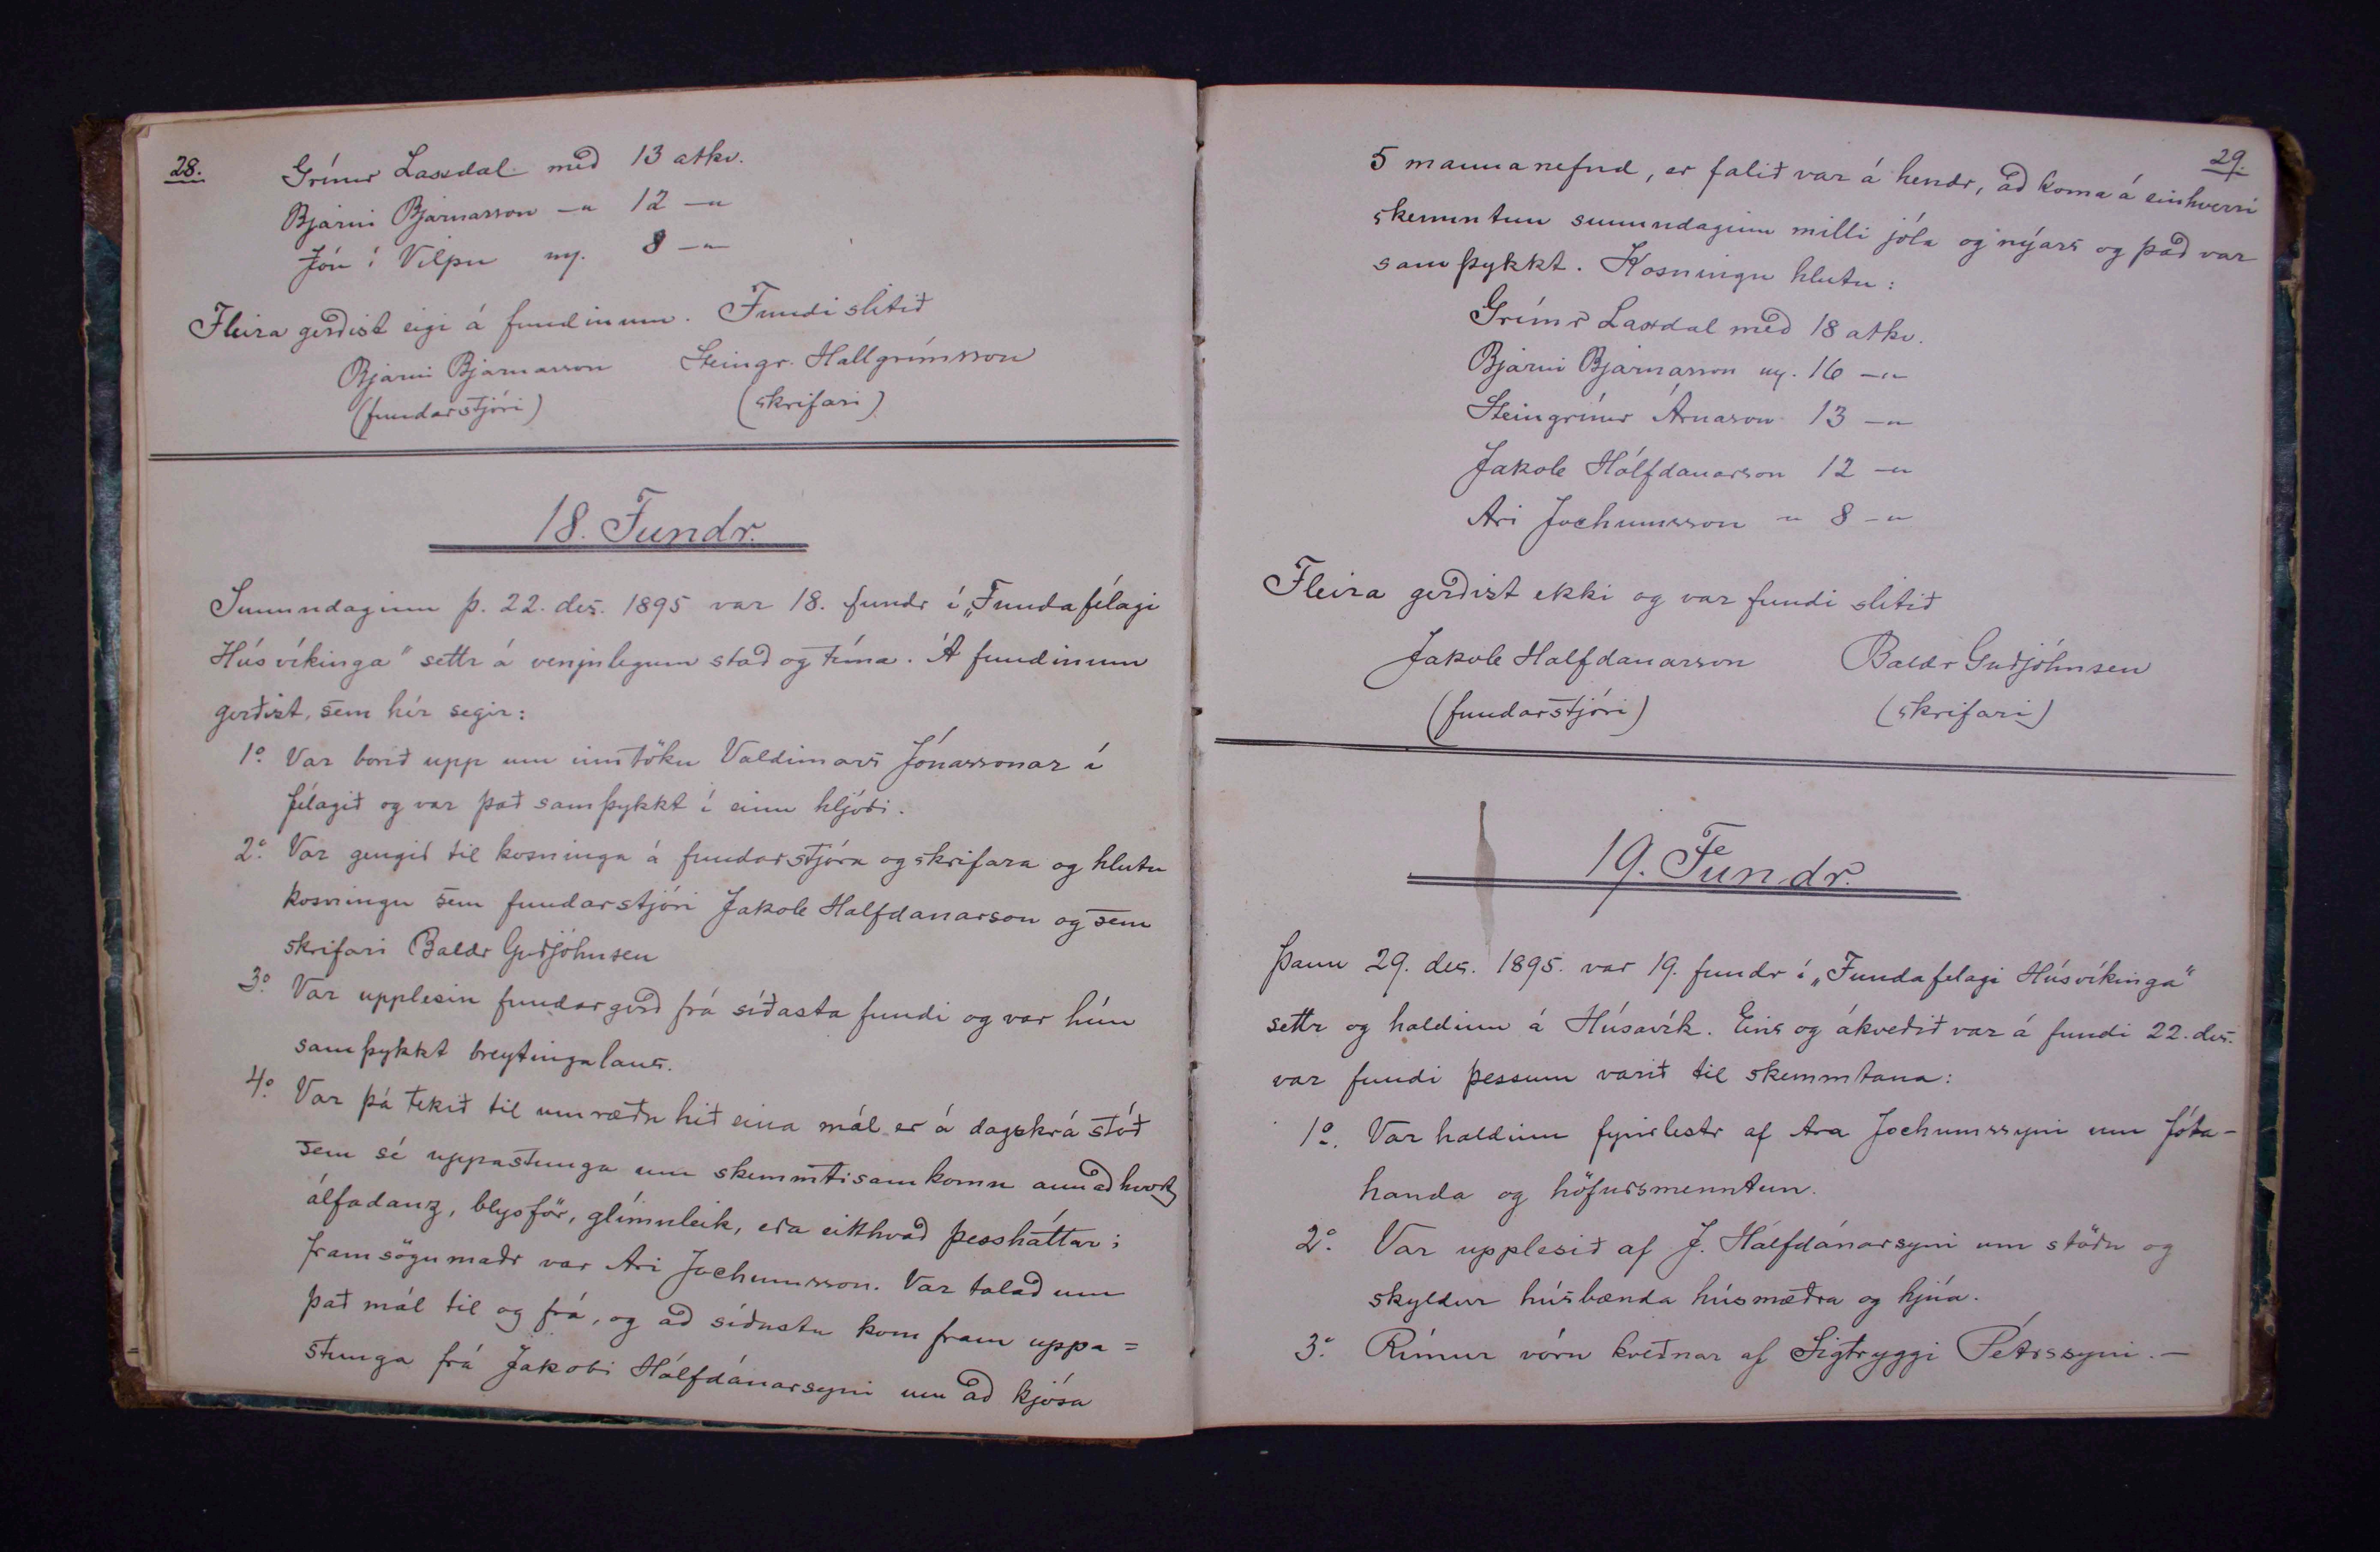 28.
Grímr Laxdal með 13 atkv.
Bjarni Bjarnarson –„ 12 –„
Jón í Vilpu 8 –„
Fleira gerðist eigi á fundinum. Fundi slitið
Bjarni Bjarnarson Steingr. Hallgrímsson
(fundarstjóri) (skrifari)
18. Fundr.
Sunnudaginn þ. 22. des. 1895 var 18. fundr í „Fundafélagi
Húsvíkinga“ settr á venjulegum stað og tíma. Á fundinum
gerðist, sem hér segir:
1o. Var borið upp um inntöku Valdimars Jónassonar í
félagið og var það samþykkt í einu hljóði.
2o. Var gengið til kosninga á fundarstjóra og skrifara og hlutu
kosningu sem fundarstjóri Jakob Halfdanarson og sem
skrifari Baldr Guðjohnsen
3o. Var upplesin fundargerð frá síðasta fundi og var hún
samþykkt breytingalaus.
4o. Var þá tekið til umræðu hið eina mál er á dagskrá stóð
sem sé uppastunga um skemmtisamkomu annaðhvort
álfadanz, blysför, glímuleik, eða eitthvað þessháttar;
framsögumaðr var Ari Jochumsson. Var talað um
það mál til og frá, og að síðustu kom fram uppa=
stunga frá Jakobi Hálfdánarsyni um að kjósa
29.
5 manna nefnd, er falið var á hendr, að koma á einhverri
skemmtun sunnudaginn milli jóla og nýars og það var
samþykkt. Kosningu hlutu:
Grímr Laxdal með 18 atkv.
Bjarni Bjarnarson 16 –„
Steingrímr Árnason 13 –„
Jakob Hálfdanarson 12 –„
Ari Jochumsson „ 8 –„
Fleira gerðist ekki og var fundi slitið
Jakob Halfdanarson Baldr Guðjóhnsen
(fundarstjóri) (skrifari)
19. Fundr.
Þann 29. des. 1895. var 19. fundr í „Fundafelagi Húsvíkinga“
settr og haldinn á Húsavík. Eins og ákveðið var á fundi 22. des.
var fundi þessum varið til skemmtana:
1o. Var haldinn fyrirlestr af Ara Jochumssyni um fóta-
handa og höfuðsmenntun.
2o. Var upplesið af J. Hálfdánarsyni um stöðu og
skyldur húsbænda húsmæðra og hjúa.
3o. Rímur vóru kveðnar af Sigtryggi Pétrssyni. –